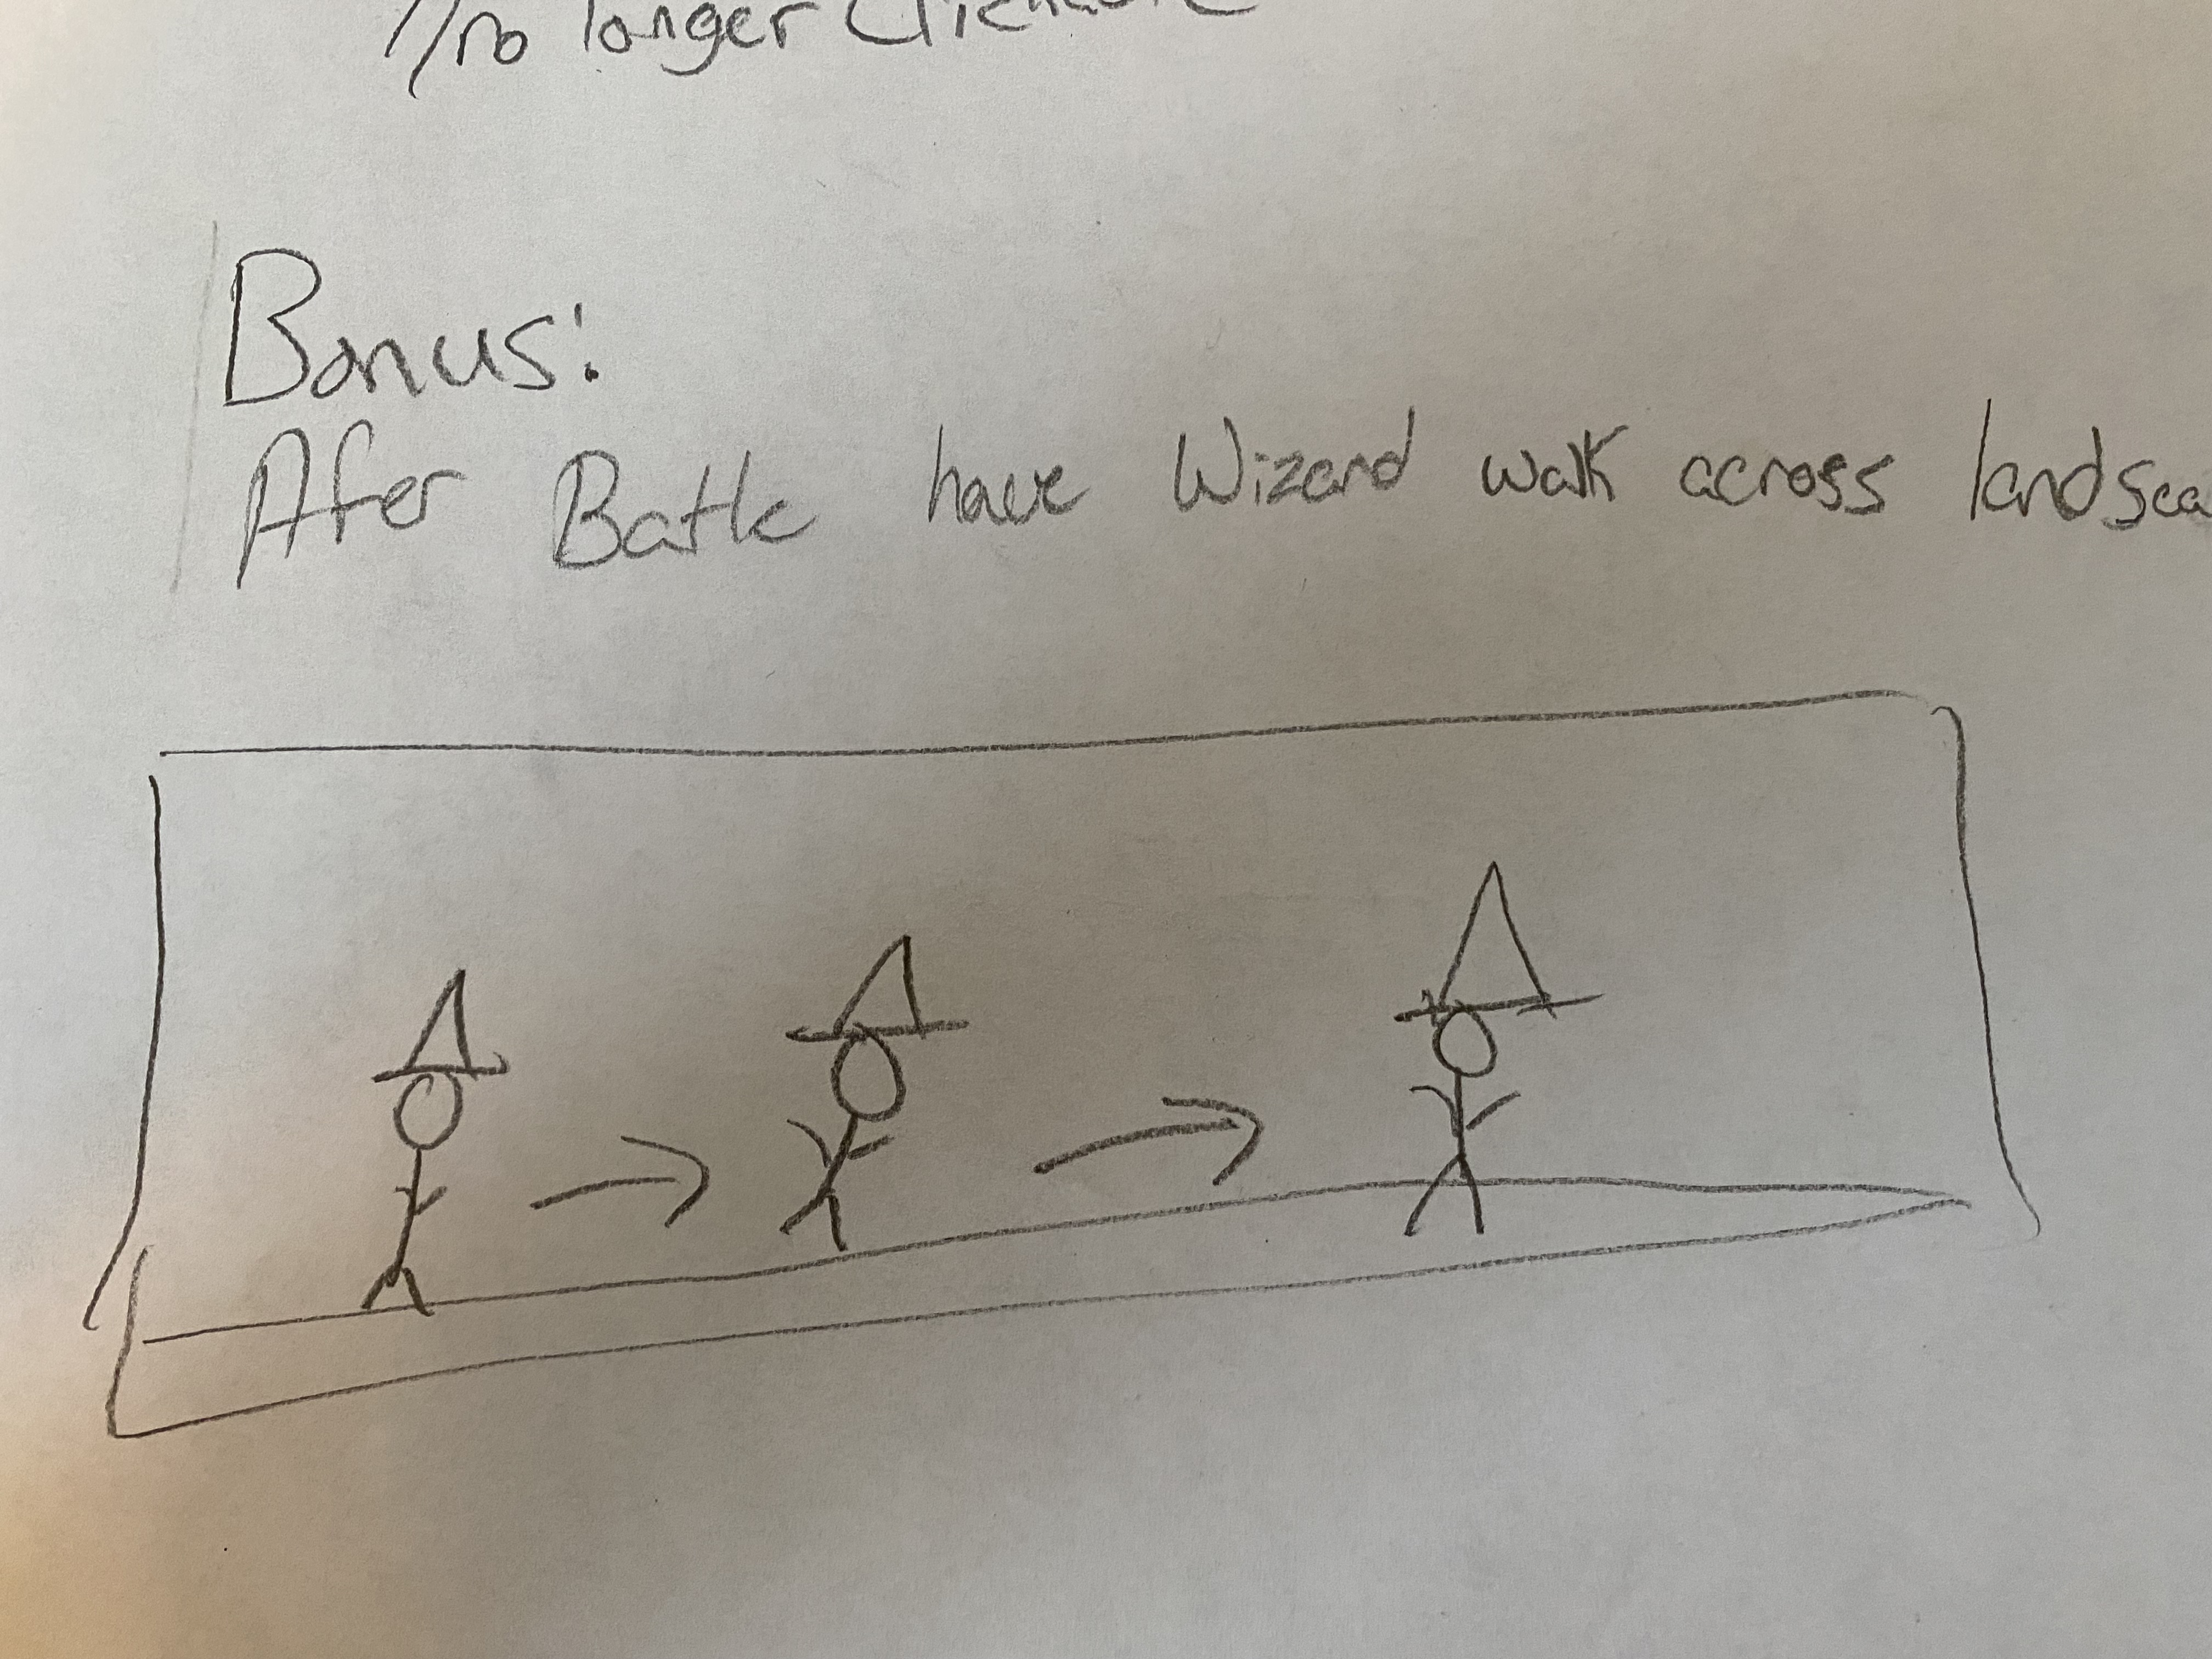 //no longer
Bonus:
Afer Battle have Wizard walk across